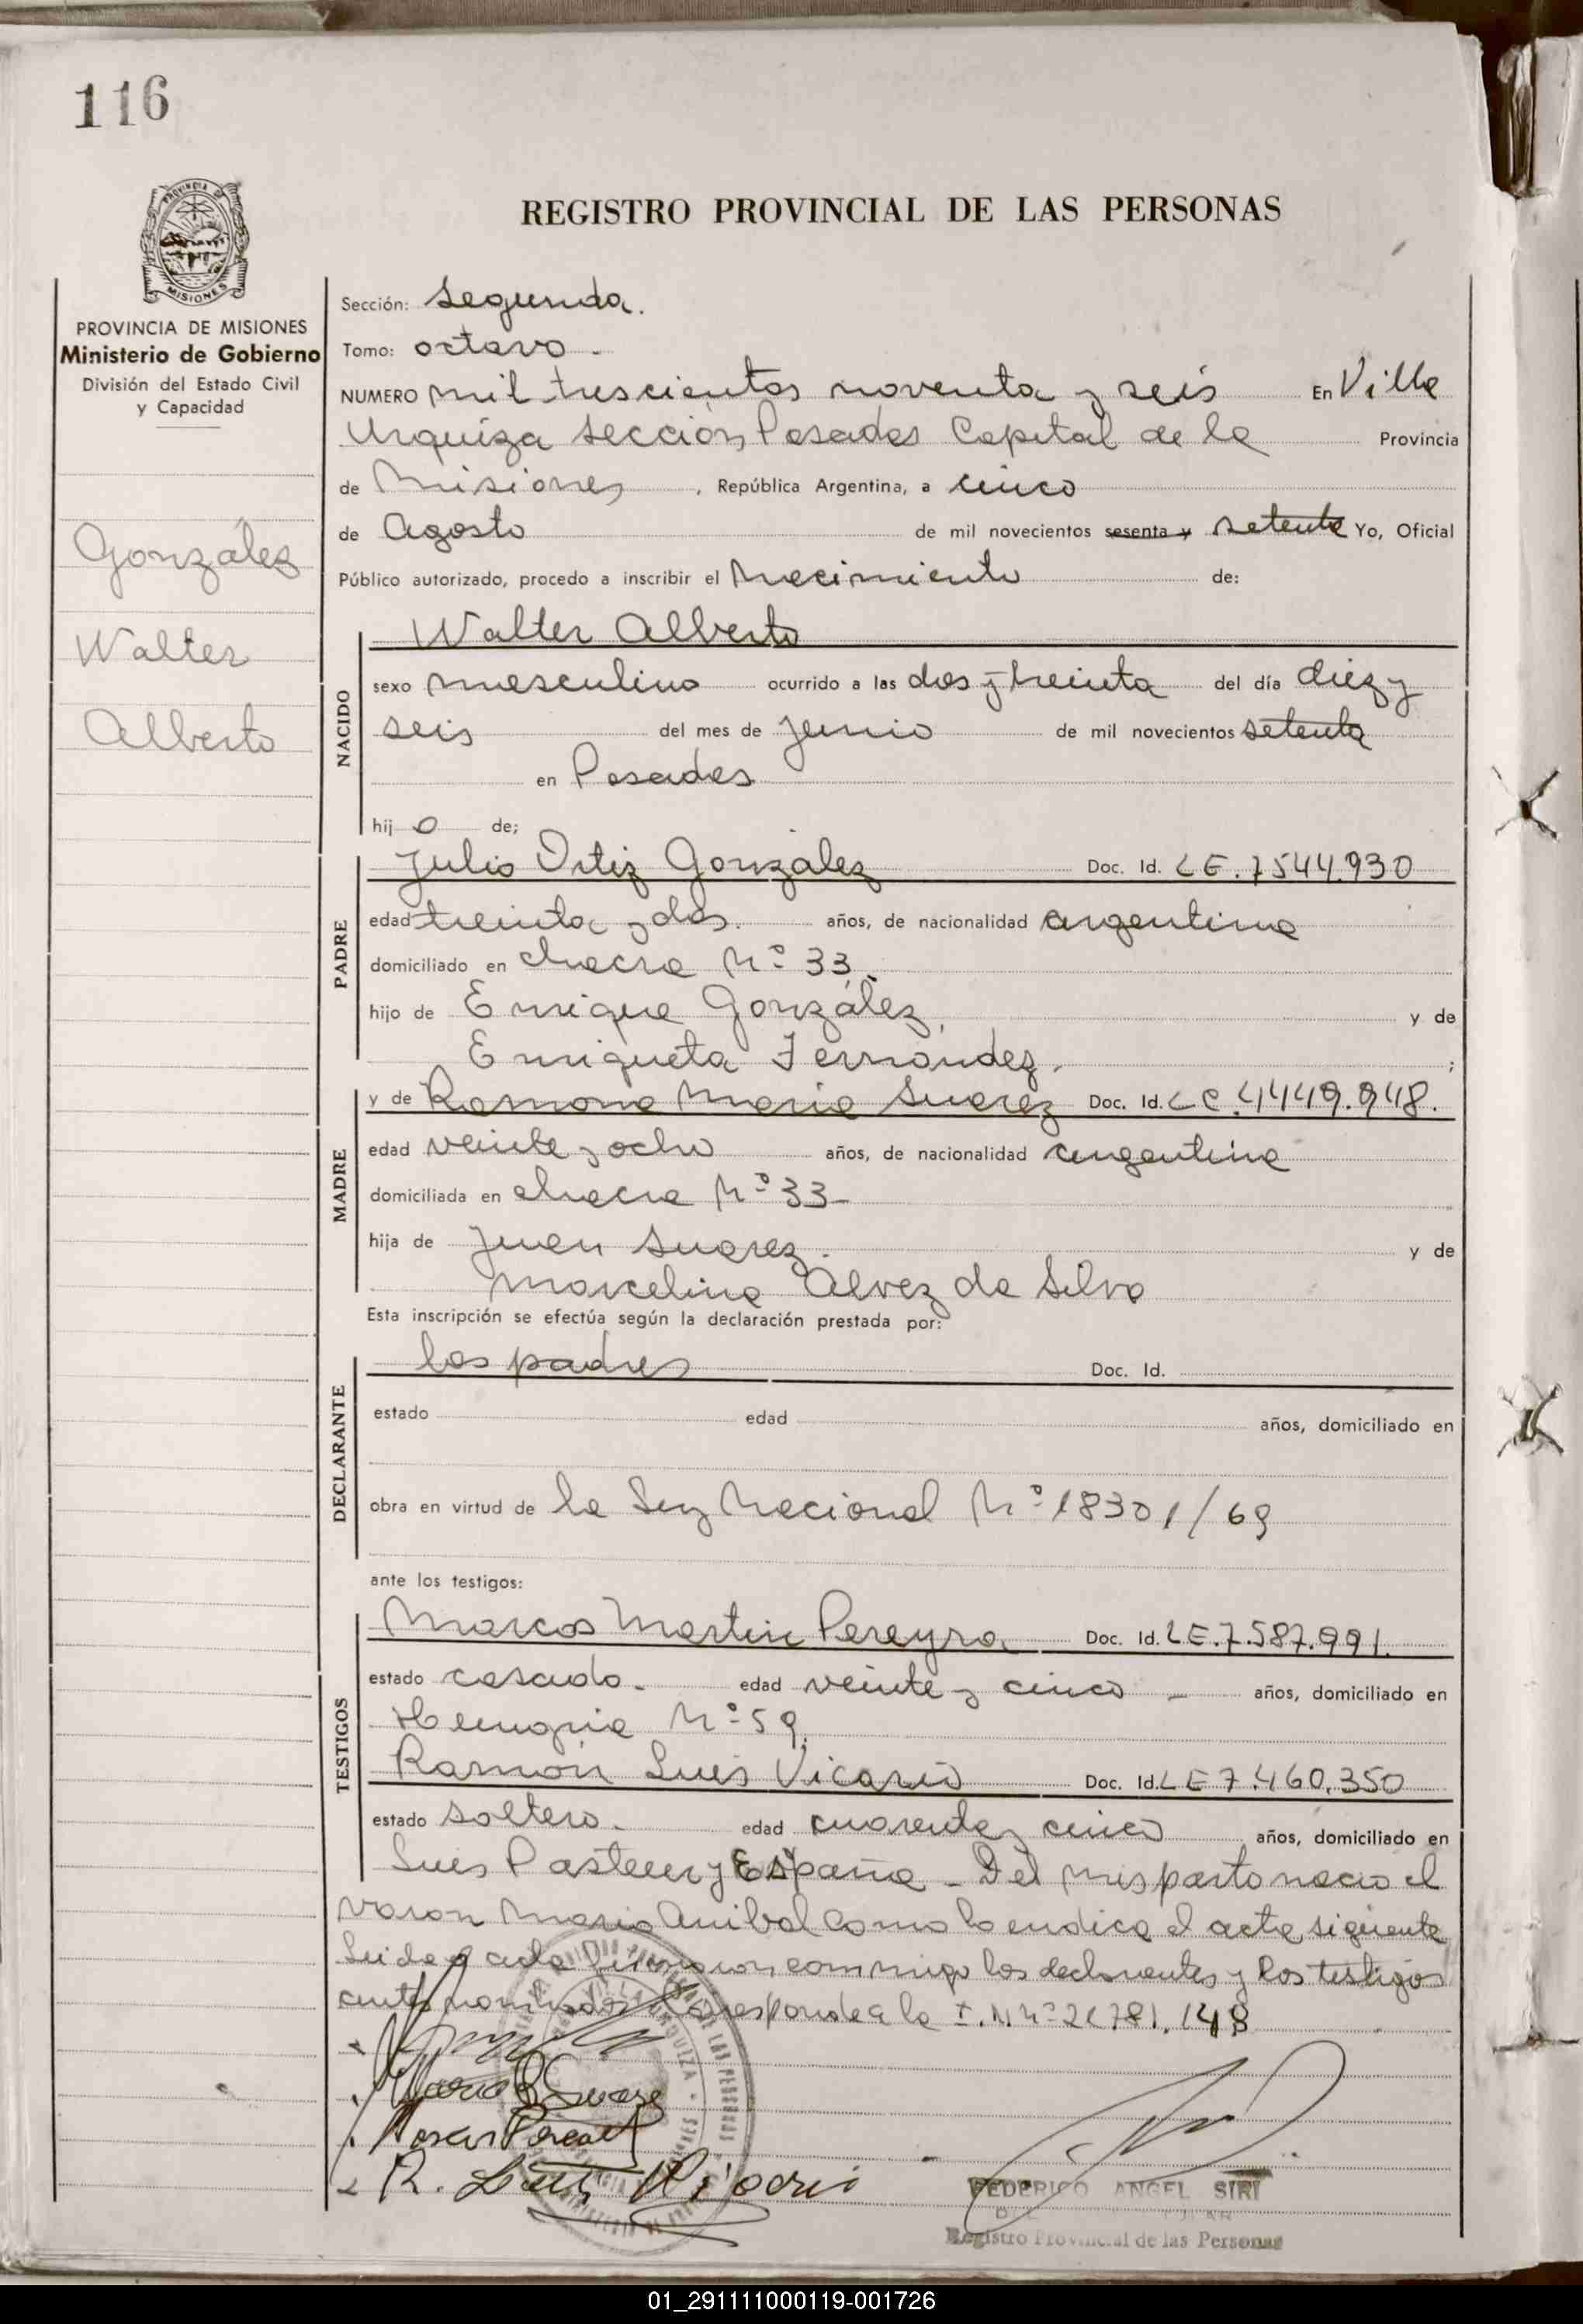 116
PROVINCIA DE
MISIONES
REGISTRO PROVINCIAL DE LAS PERSONAS
PROVINCIA DE MISIONES
Ministerio de Gobierno
División del Estado Civil
y Capacidad
González
Walter
Alberto
Sección: segunda.
Tomo: octavo -
NUMERO mil trescientos noventa y seis En Villa
Urquiza sección Posadas Capital de la Provincia
de Misiones, República Argentina, a cinco
de Agosto de mil novecientos sesenta y setenta Yo, Oficial
Público autorizado, procedo a inscribir el Nacimiento de:
NACIDO
Walter Alberto
sexo masculino ocurrido a las dos y treinta del día diez y
seis del mes de Junio de mil novecientos setenta
en Posadas
hij o de;
PADRE
Julio Ortiz González Doc. Id. LE. 7544.930
edad treinta y dos. años, de nacionalidad argentina
domiciliado en chacra Nº 33.
hijo de Enrique González, y de
Enriqueta Fernández. ;
MADRE
y de Ramona Maria Suarez Doc. Id. LC. 4449.948.
edad veinte y ocho años, de nacionalidad argentina
domiciliada en chacra Nº 33-
hija de Juan Suarez. y de
Marcelina Alvez da Silva
Esta inscripción se efectúa según la declaración prestada por:
DECLARANTE
los padres Doc. Id.
estado edad años, domiciliado en
obra en virtud de la Ley Nacional Nº 18301/69
ante los testigos:
TESTIGOS
Marcos Martin Pereyra Doc. Id. LE. 7.587.991.
estado casado. edad veinte y cinco - años, domiciliado en
Nº 59.
Ramón Luis Vicario Doc. Id. LE 7.460.350
estado soltero. edad cuarenta y cinco años, domiciliado en
Luis Pasteur y España - Del mis parto nacio el
varon Mario Anibal como lo indica el acta siguiente
Leida el acta firmaron conmigo los declarantes y los testigos
antes nombrados Corresponde a la I. N Nº 21781.148
R. Luis Vicario
FEDERICO ANGEL SIRI
Registro Provincial de las Personas
01_291111000119-001726